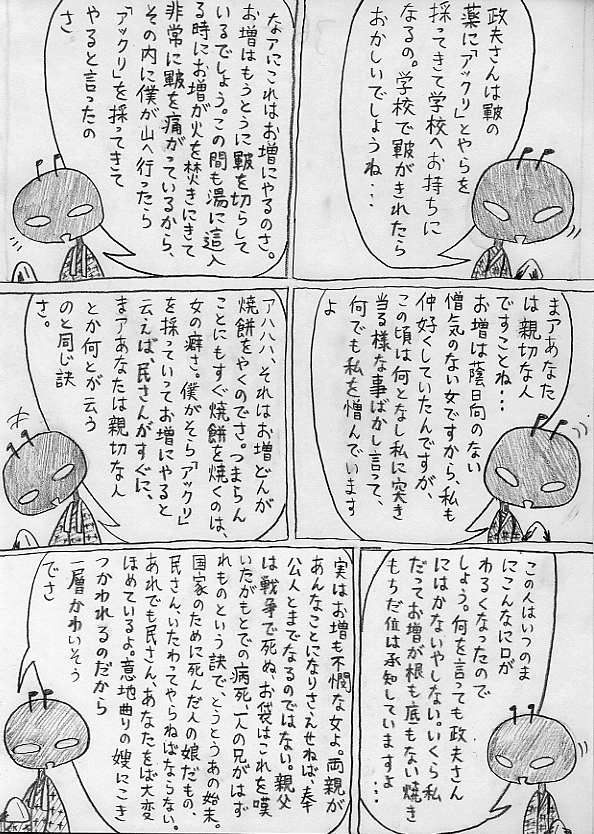 政夫さんは皸の
薬に「アックリ」とやらを
採ってきて学校へお持ちに
なるの。学校で皸がきれたら
おかしいでしょうね・・・
なアにこれはお増にやるのさ。
お増はもうとうに皸を切らして
いるでしょう。この間も湯に這入
る時にお増が火を焚きにきて
非常に皸を痛がっているから、
その内に僕が山へ行ったら
「アックリ」を採ってきて
やると言ったの
さ
まアあなた
は親切な人
ですことね・・・
お増は蔭日向のない
憎気のない女ですから、私も
仲好くしていたんですが、
この頃は何となし私に突き
当る様な事ばかし言って、
何でも私を憎んでいます
よ
アハハハ、それはお増どんが
焼餅をやくのでさ。つまらん
ことにもすぐ焼餅を焼くのは、
女の癖さ。僕がそら「アックリ」
を採っていってお増にやると
云えば、民さんがすぐに、
まアあなたは親切な人
とか何とか云う
のと同じ訣
さ。
この人はいつのま
にこんなに口が
わるくなったので
しょう。何を言っても政夫さん
にはかないやしない。いくら私
だってお増が根も底もない焼き
もちだ位は承知していますよ
・・・
実はお増も不憫な女よ。両親が
あんなことになりさえせねば、奉
公人とまでなるのではない。親父
は戦争で死ぬ、お袋はこれを嘆
いたがもとでの病死、一人の兄がはず
れものという訣で、とうとうあの始末。
国家のために死んだ人の娘だもの、
民さん、いたわってやらねばならない。
あれでも民さん、あなたをば大変
ほめているよ。意地曲りの嫂にこき
つかわれるのだから
一層かわいそう
でさ